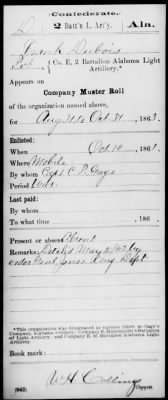 Confederate.
D 2 Batt'n L. Art'y. Ala.
Frank Dubois
Pvt., Co. E, 2 Battalion Alabama Light
Artillery.*
Appears on
Company Muster Roll
of the organization named above,
for Aug 31 to Oct 31, 1863.
Enlisted:
When Oct 10, 1861.
Where Mobile
By whom Capt. C. P. Gage
Period War
Last paid:
By whom
To what time , 186 .
Present or absent Absent
Remarks: Detch'd May 1/62 by
order Genl. Jones. Eng. Dept.
*This organization was designated at various times as Gage's
Company, Alabama Artillery; Company E,
of Light Artillery, and Company E, 2d Battalion Alabama Light
Artillery.
Book mark:
W H Collins
(642) Copyist.